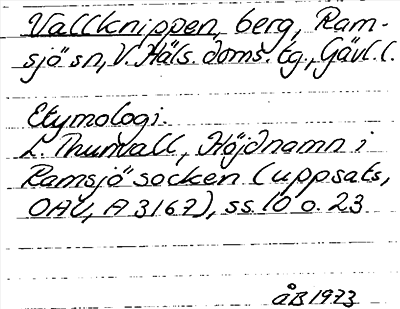 Vallknippen, berg, Ram-
sjö sn, V. Häls. doms. tg., Gävl. l.
Etymologi.
L. Thunvall, Höjdnamn i
Ramsjö socken (uppsats,
OAU, A 3167), ss. 10 o. 23
åB 1973